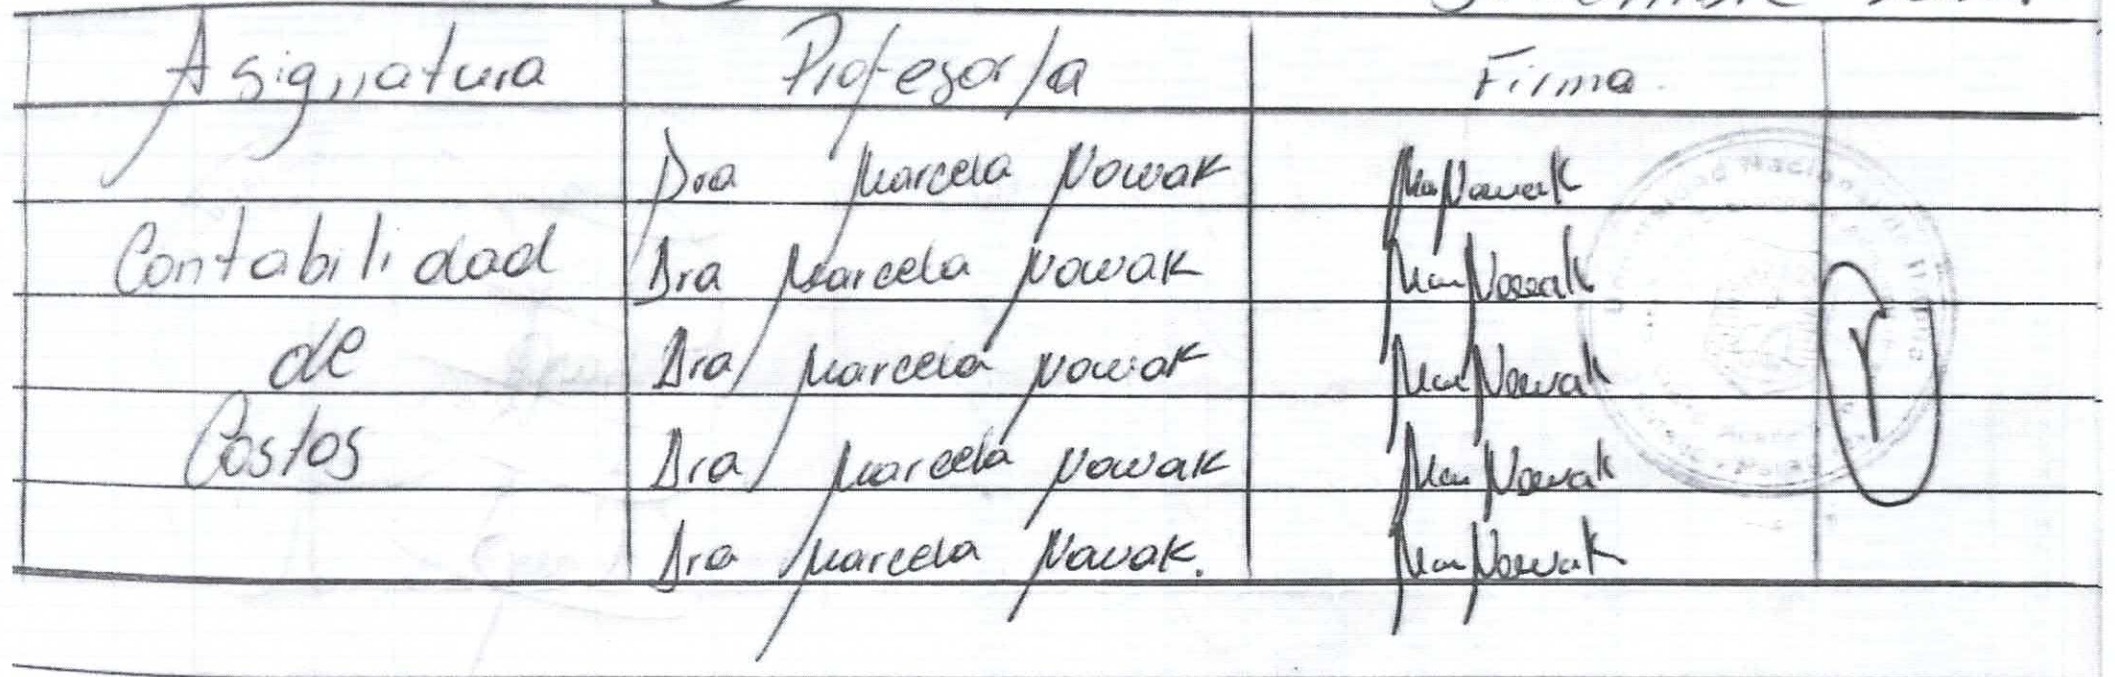 Asignatura Profesor/a Firma
Dra Marcela Nowak MarNowak
Contabilidad Dra Marcela Nowak MarNowak
de Dra Marcela Nowak MarNowak
Costos Dra Marcela Nowak MarNowak
Dra Marcela Nowak. MarNowak